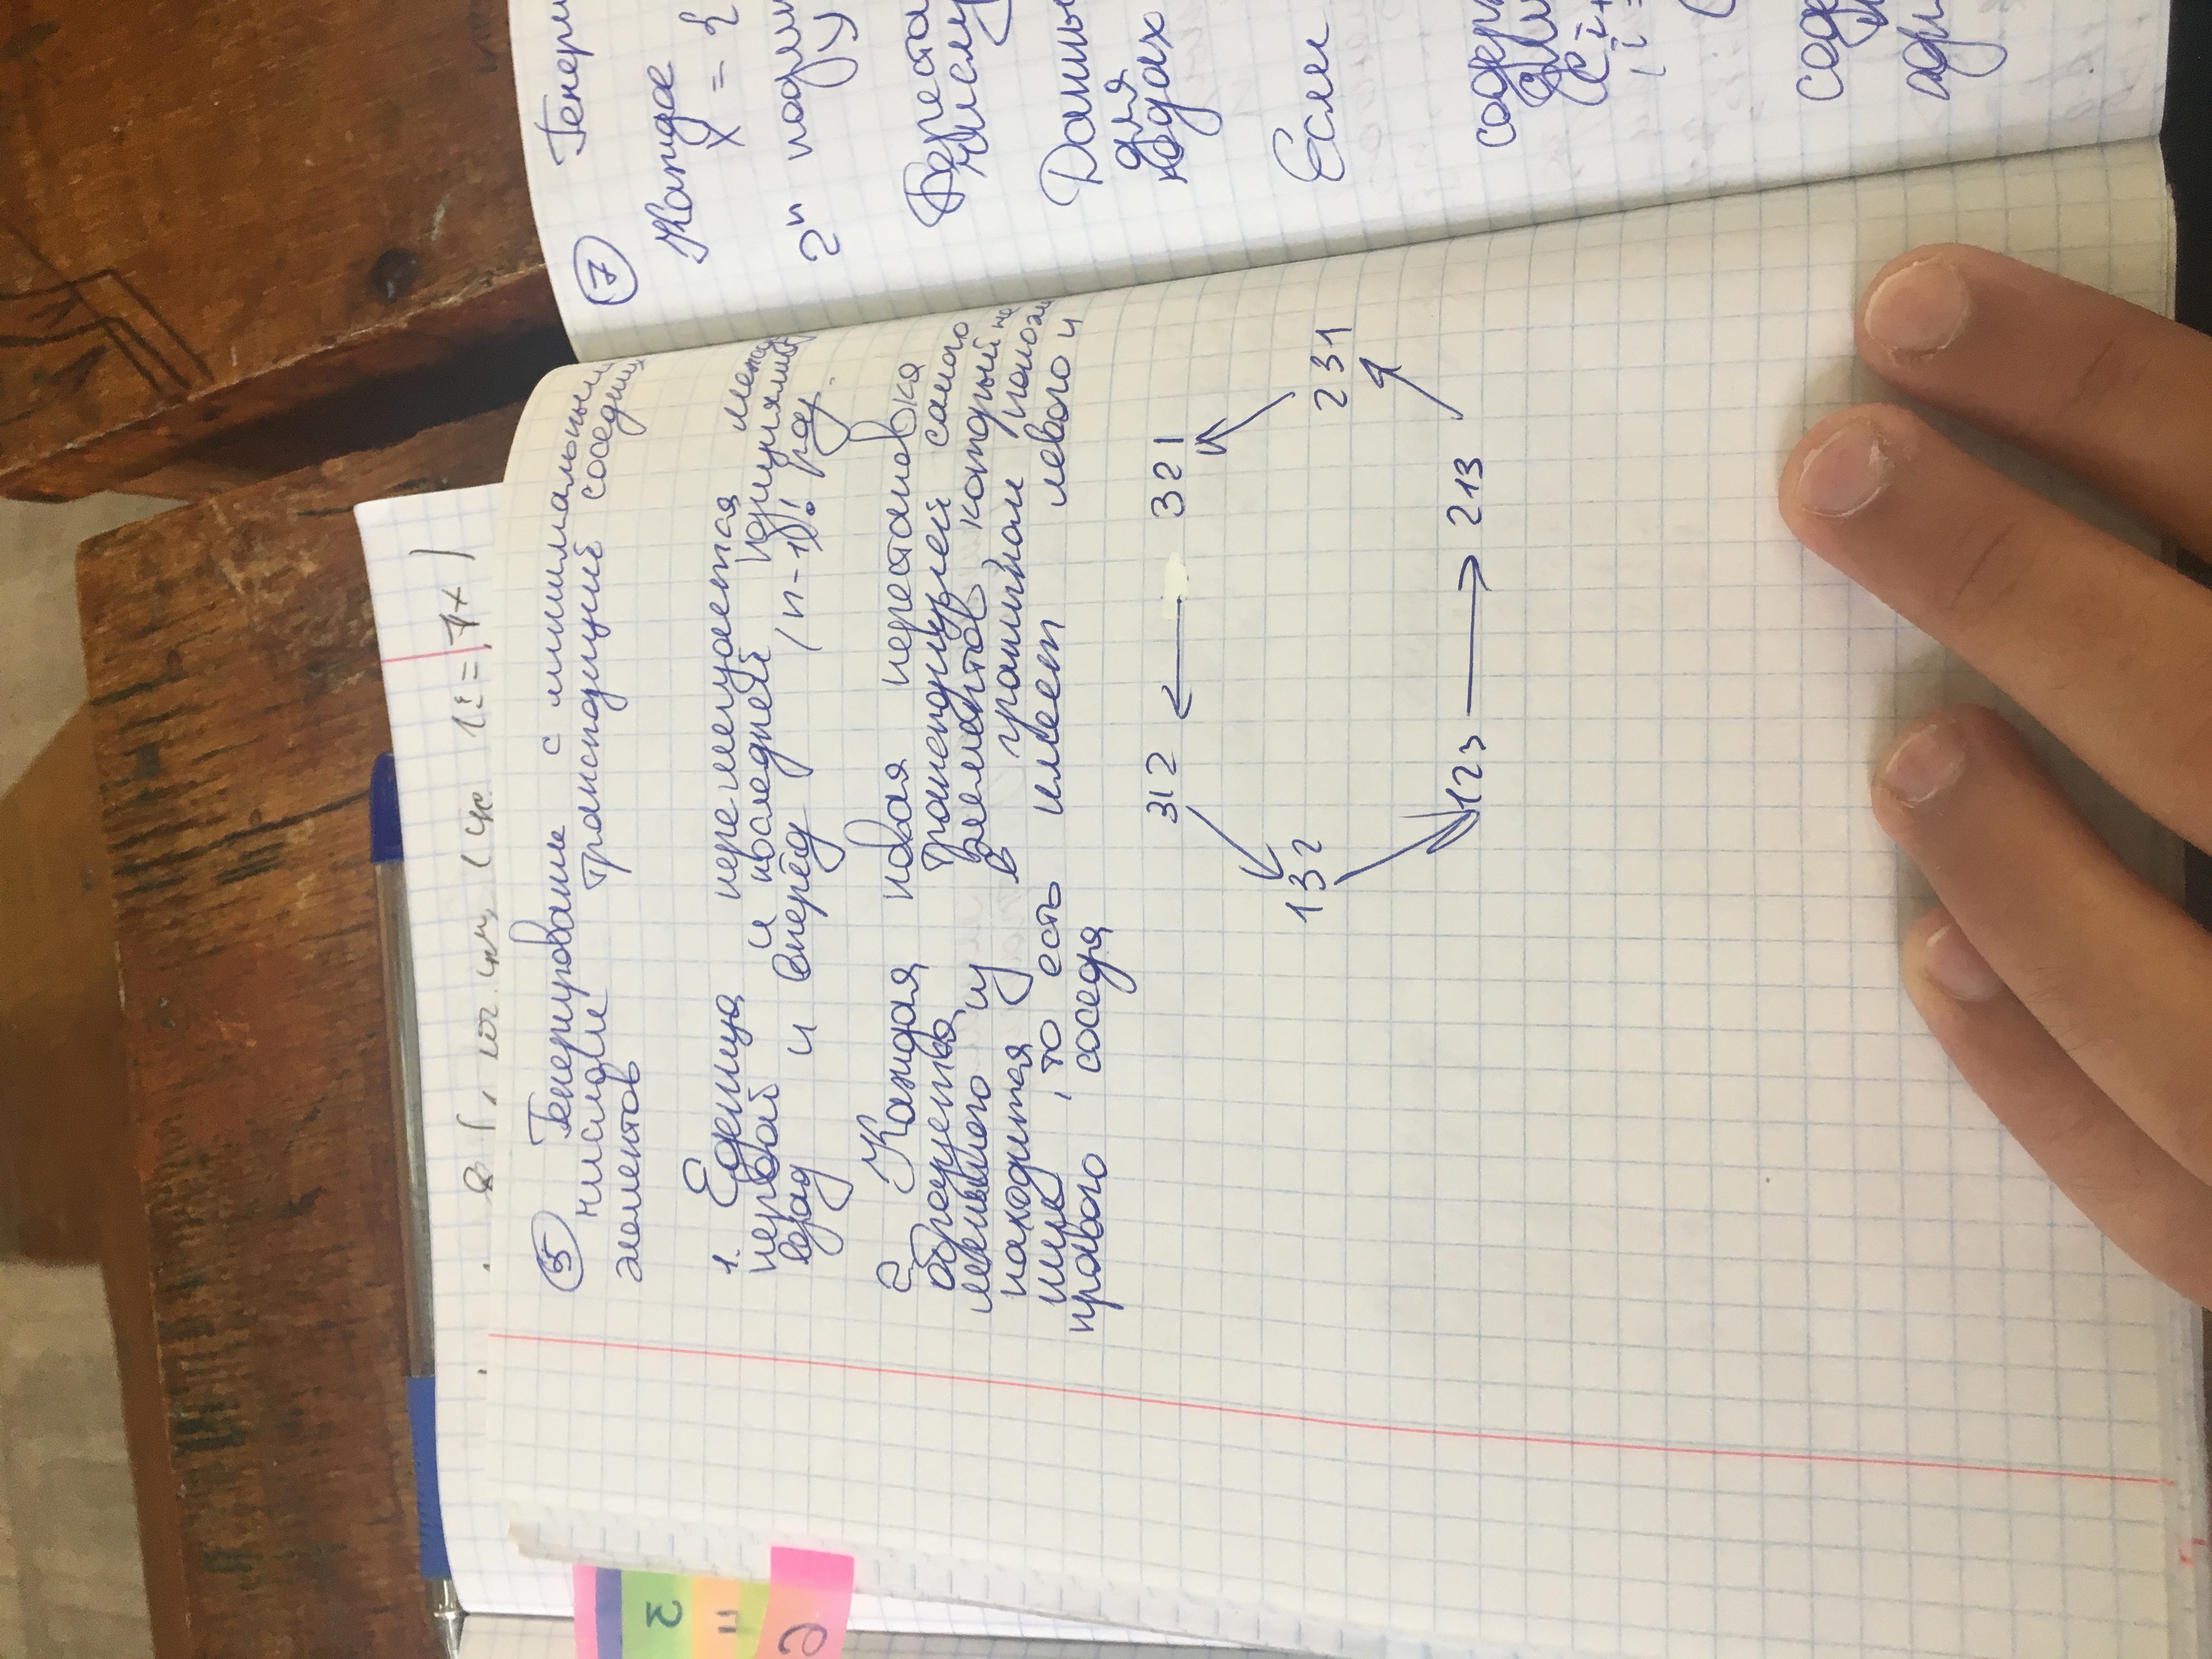 1! = 7x
5 Генерирование с минимальным
числом транспозиций соседних
элементов
1. Единица перемещается между
первой и последней позициями
взад и вперёд (n-1)! раз.
2 Каждая новая перестановка
образуется транспозицией самого
меньшего из элементов, который не
находится в граничном положе
нии, то есть имеет левого и
правого соседа
312 ← 321
132
231
123 → 213
7 Генери
Каждое
X = {
2ⁿ подмн
У
Переста
числу
Данны
для
кодах
Если
содерж
дли
Ci+
, i =
соде
3
4
6